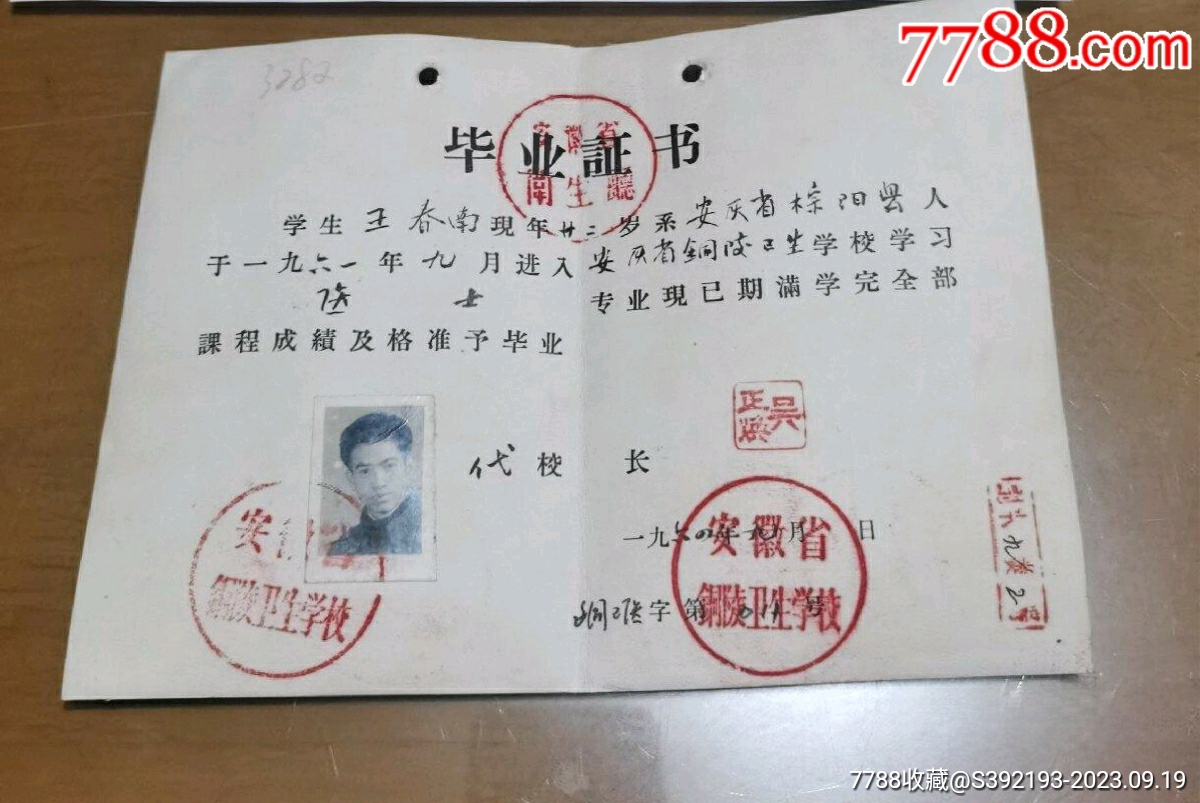 7788.com
3282
毕业証书
安徽省
衛生廳
学生王春南現年廿二岁系安庆省棕阳县人
于一九六一年九月进入安庆省銅陵卫生学校学习
医士专业現已期滿学完全部
課程成績及格准予毕业
吴正
代校长
安
銅陵卫生学校
一九六四年九月日
安徽省
銅陵卫生学校
銅医字第号
7788收藏@S392193-2023.09.19